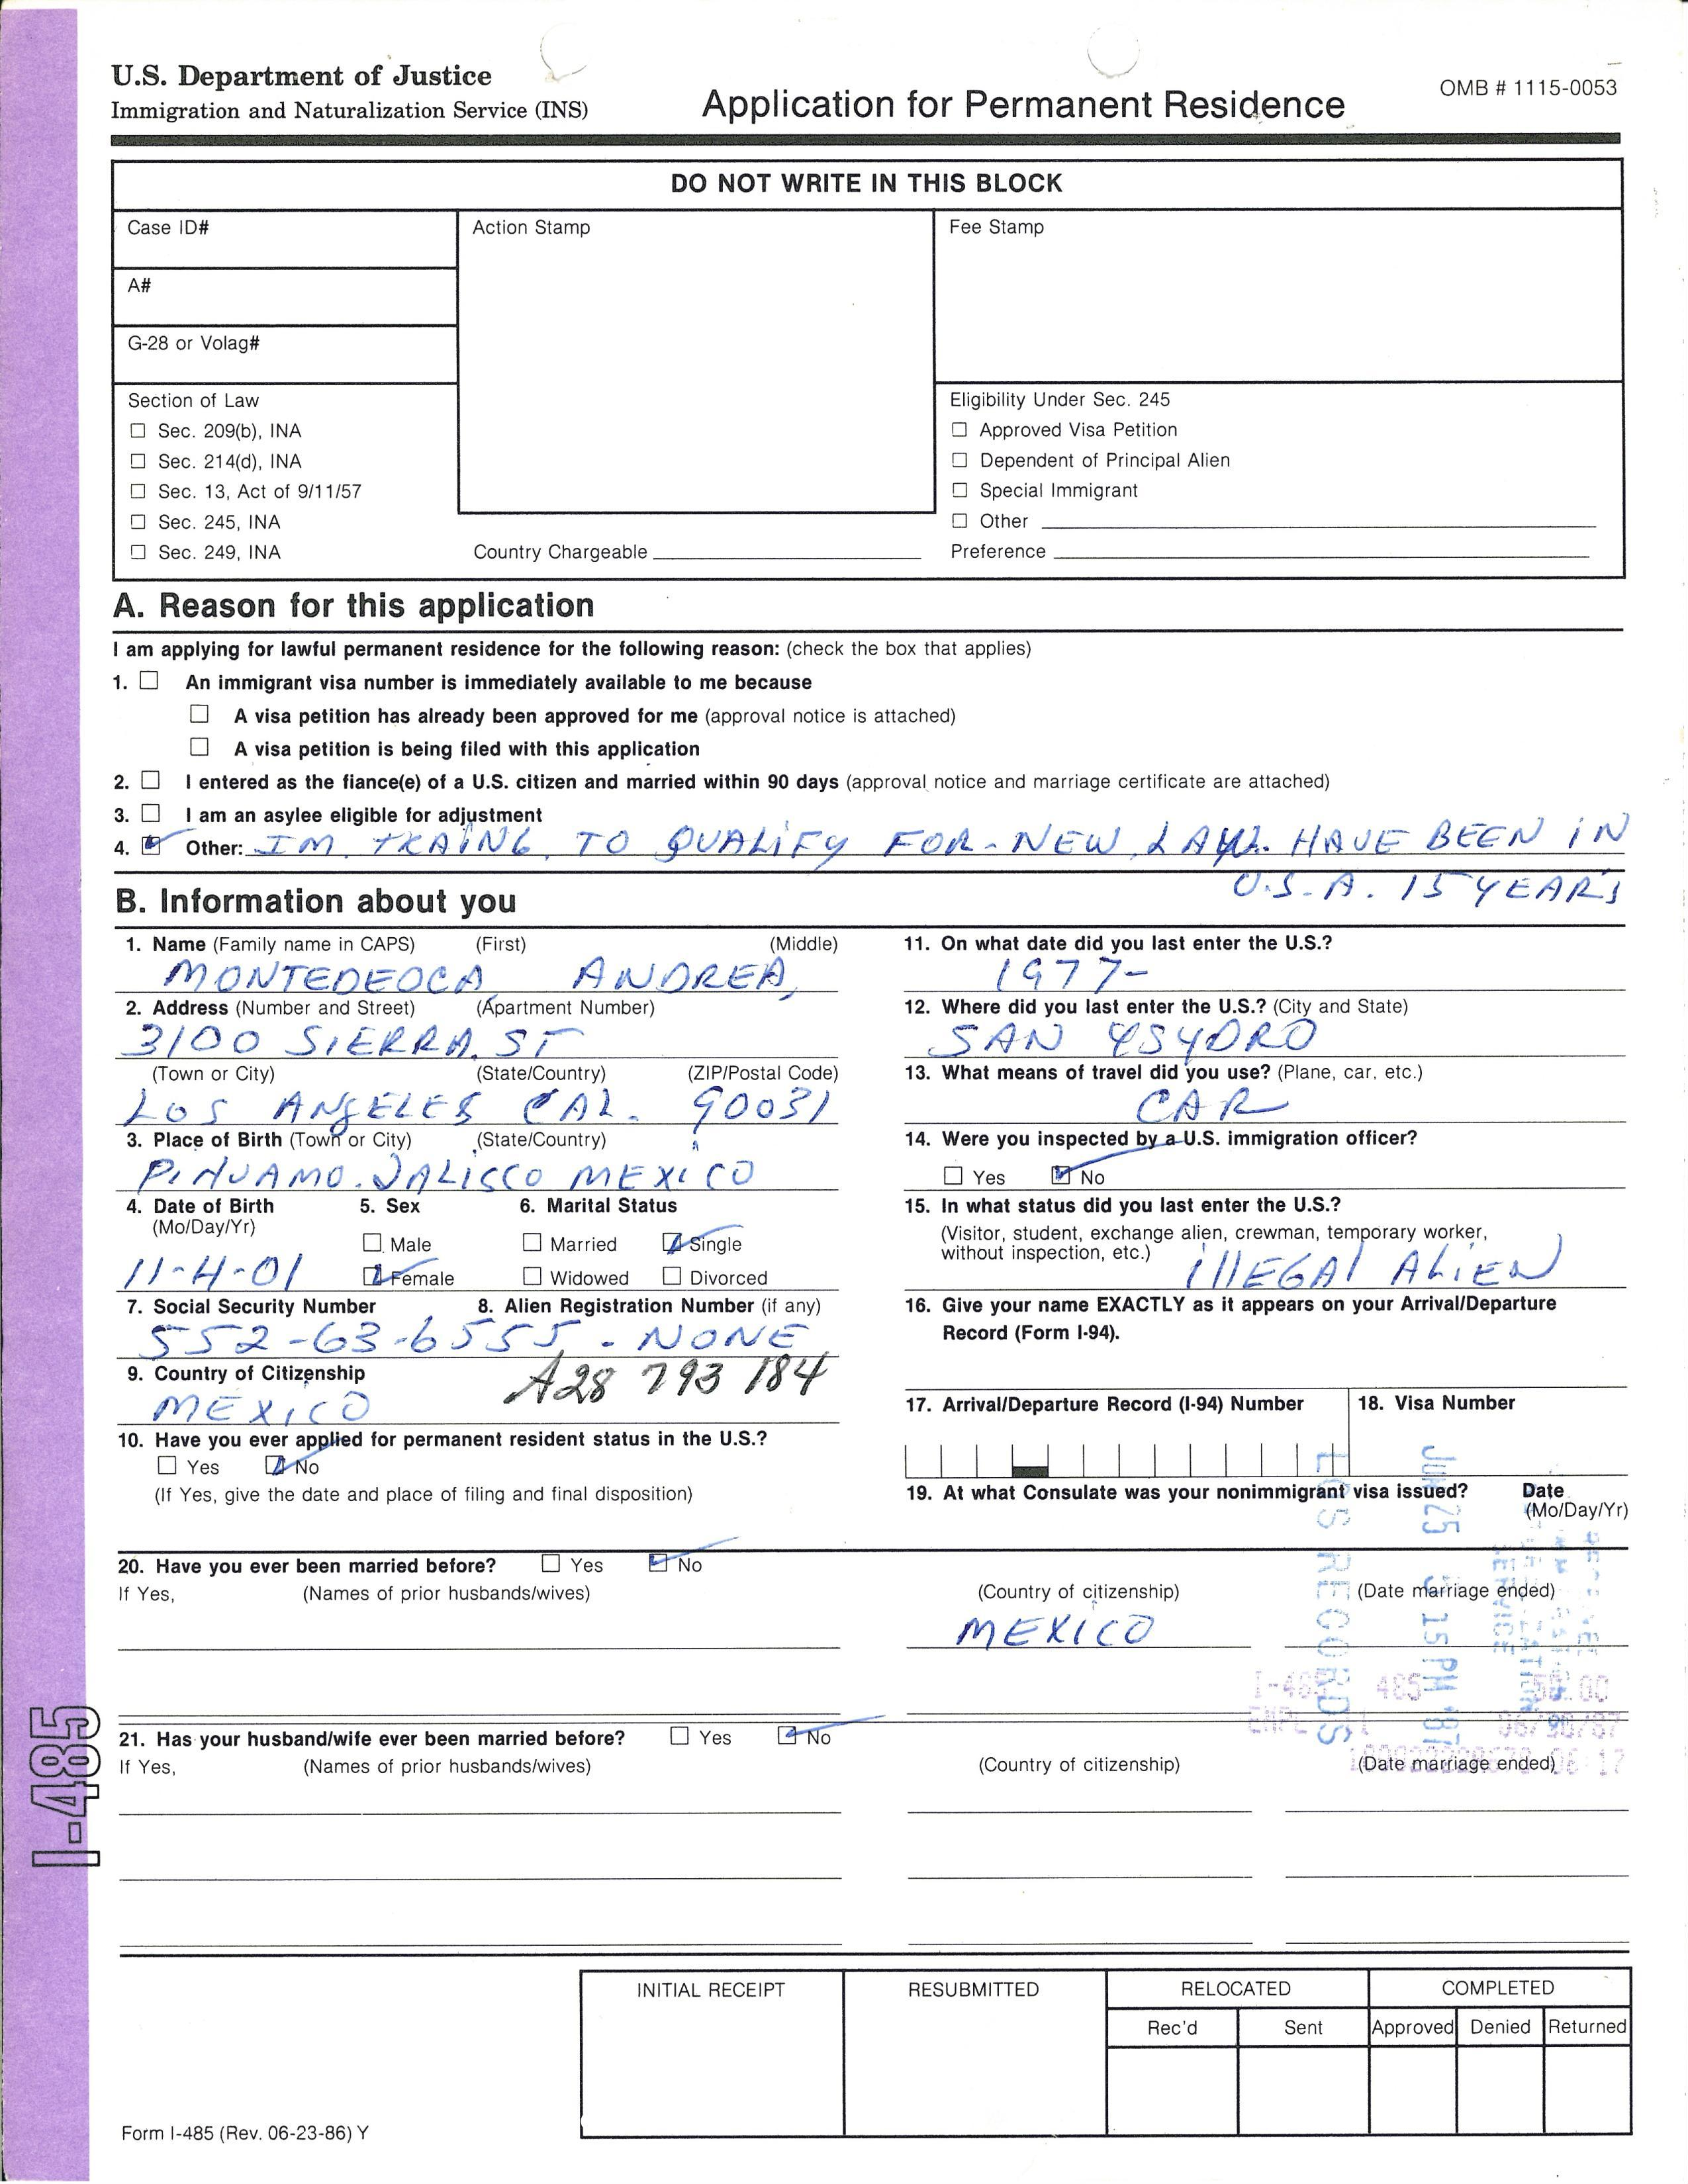 U.S. Department of Justice
Immigration and Naturalization Service (INS)
Application for Permanent Residence
OMB # 1115-0053
DO NOT WRITE IN THIS BLOCK
Case ID#
Action Stamp
Fee Stamp
A#
G-28 or Volag#
Section of Law
☐ Sec. 209(b), INA
☐ Sec. 214(d), INA
☐ Sec. 13, Act of 9/11/57
☐ Sec. 245, INA
☐ Sec. 249, INA
Country Chargeable
Eligibility Under Sec. 245
☐ Approved Visa Petition
☐ Dependent of Principal Alien
☐ Special Immigrant
☐ Other
Preference
A. Reason for this application
I am applying for lawful permanent residence for the following reason: (check the box that applies)
1. ☐ An immigrant visa number is immediately available to me because
☐ A visa petition has already been approved for me (approval notice is attached)
☐ A visa petition is being filed with this application
2. ☐ I entered as the fiance(e) of a U.S. citizen and married within 90 days (approval notice and marriage certificate are attached)
3. ☐ I am an asylee eligible for adjustment
4. ☑ Other: IM TRAING TO QUALIFY FOR NEW LAW. HAVE BEEN IN
U.S.A. 15 YEARS
B. Information about you
1. Name (Family name in CAPS) (First) (Middle)
MONTEDEOCA ANDREA,
2. Address (Number and Street) (Apartment Number)
3100 SIERRA. ST
(Town or City) (State/Country) (ZIP/Postal Code)
LOS ANGELES CAL. 90031
3. Place of Birth (Town or City) (State/Country)
PINUAMO. JALISCO MEXICO
4. Date of Birth (Mo/Day/Yr)
11-4-01
5. Sex
☐ Male
☑ Female
6. Marital Status
☐ Married ☑ Single
☐ Widowed ☐ Divorced
7. Social Security Number 8. Alien Registration Number (if any)
552-63-6555 - NONE
A28 793 184
9. Country of Citizenship
MEXICO
10. Have you ever applied for permanent resident status in the U.S.?
☐ Yes ☑ No
(If Yes, give the date and place of filing and final disposition)
11. On what date did you last enter the U.S.?
1977-
12. Where did you last enter the U.S.? (City and State)
SAN YSYDRO
13. What means of travel did you use? (Plane, car, etc.)
CAR
14. Were you inspected by a U.S. immigration officer?
☐ Yes ☑ No
15. In what status did you last enter the U.S.?
(Visitor, student, exchange alien, crewman, temporary worker,
without inspection, etc.) ILLEGAL ALIEN
16. Give your name EXACTLY as it appears on your Arrival/Departure
Record (Form I-94).
17. Arrival/Departure Record (I-94) Number
18. Visa Number
19. At what Consulate was your nonimmigrant visa issued? Date
(Mo/Day/Yr)
20. Have you ever been married before? ☐ Yes ☑ No
If Yes, (Names of prior husbands/wives) (Country of citizenship) (Date marriage ended)
MEXICO
JUN 25 3 15 PM '87
RECORDS
I-485 485 50.00
21. Has your husband/wife ever been married before? ☐ Yes ☑ No
If Yes, (Names of prior husbands/wives) (Country of citizenship) (Date marriage ended)
I-485
INITIAL RECEIPT
RESUBMITTED
RELOCATED
Rec'd Sent
COMPLETED
Approved Denied Returned
Form I-485 (Rev. 06-23-86) Y